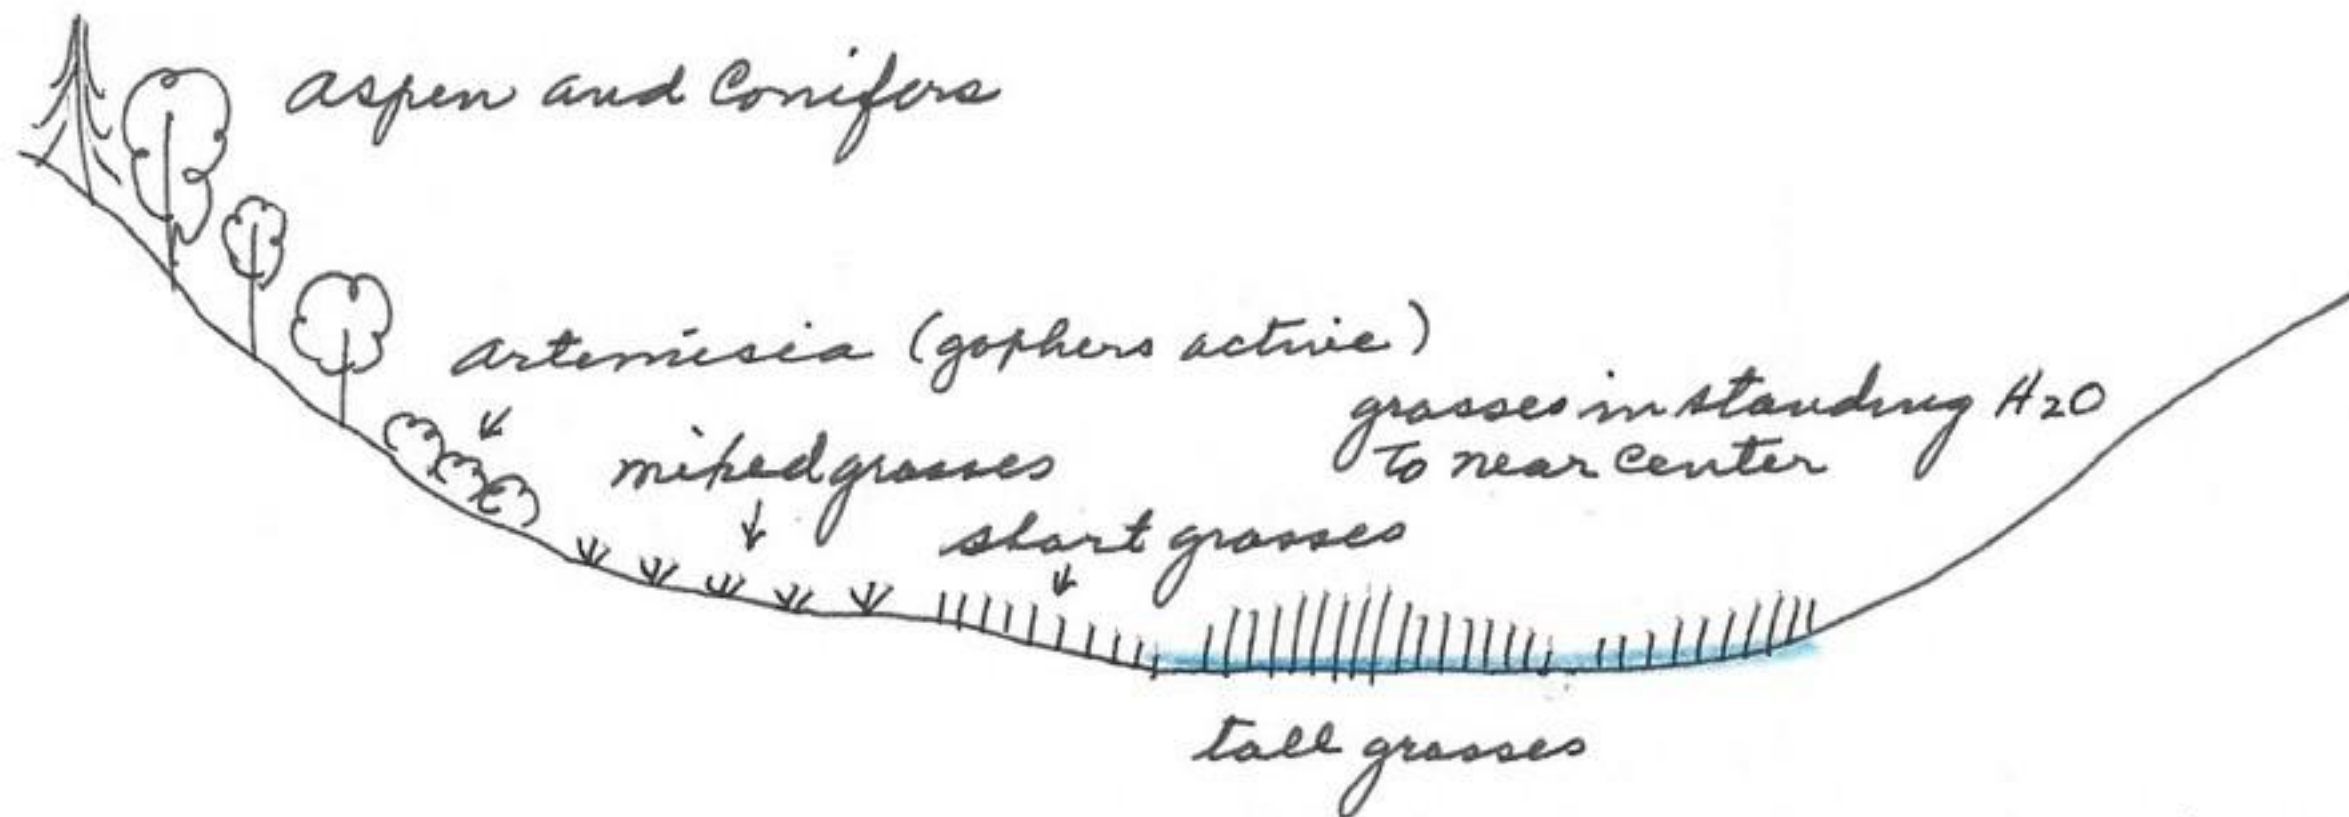 aspen and Conifers
artemisia (gophers active)
grasses in standing H2O
to near center
mixed grasses
short grasses
tall grasses